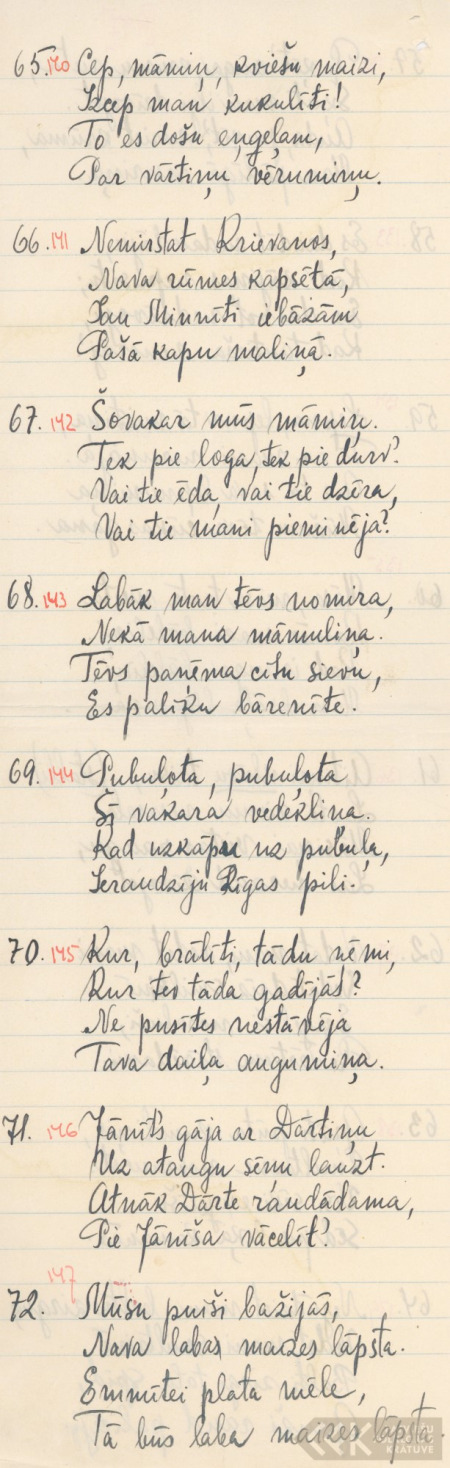 65. 140 Cep, māmiņ, kviešu maizi,
Izcep man kukulīti!
To es došu eņģeļam,
Par vārtiņu vērumiņu.
66. 141 Nemirstat Krievanos,
Nava rūmes kapsētā,
Jau Minnīti iebāzām
Pašā kapu maliņā.
67. 142 Šovakar mūs māmiņ.
Tek pie loga, tek pie durv?
Vai tie ēda, vai tie dzēra,
Vai tie mani pieminēja?
68. 143 Labāk man tēvs nomira,
Nekā mana māmuliņa.
Tēvs paņēma citu sievu,
Es paliku bārenīte.
69. 144 Pubuļota, pubuļota
Šī vakara vedekliņa.
Kad uzkāpu uz pubuļa,
Ieraudzīju Rīgas pili.
70. 145 Kur, brālīti, tādu ņēmi,
Kur tev tāda gadījās?
Ne pusītes nestāvēja
Tava daiļa augumiņa.
71. 146 Jānīts gāja ar Dārtiņu
Uz ataugu sēnu lauzt.
Atnāk Dārte raudādama,
Pie Jānīša vācelīt?
147
72. Mūsu puiši bažijās,
Nava labas maizes lāpsta.
Emmītei plata mēle,
Tā būs laba maizes lāpsta.